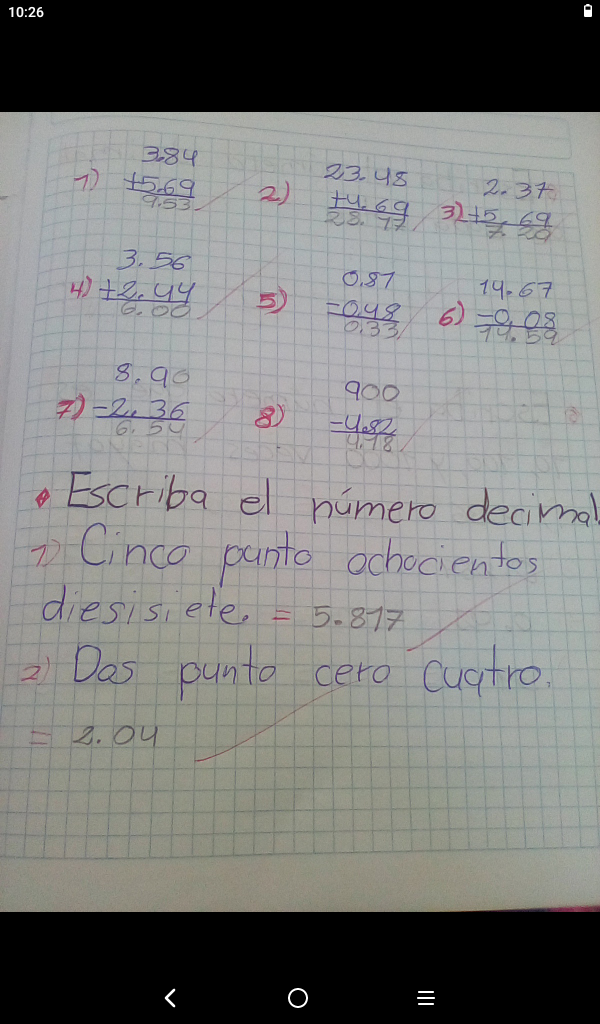 10:26
3.84
1) +5.69
9.53
23.48
2) +4.69
28.17
2.37
3) +5.69
7.29
3.56
4) +2.44
6.00
0.81
5) -0.48
0.33
14.67
6) -0.08
14.59
8.90
7) -2.36
6.54
900
8) -4.82
4.18
Escriba el número decimal
1) Cinco punto ochocientos
diesisiete. = 5.817
2) Dos punto cero cuatro.
= 2.04